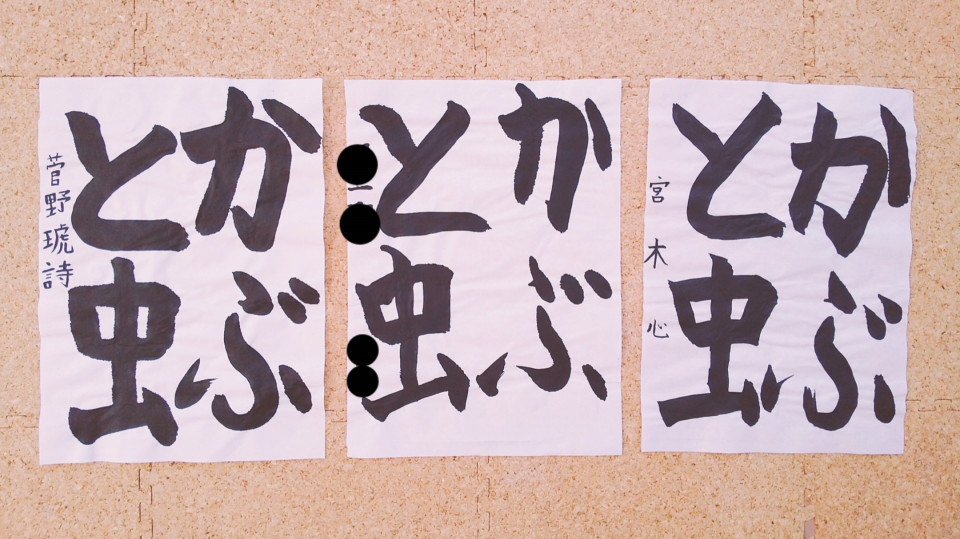 かぶ
と虫
菅野琥詩
かぶ
と虫
かぶ
と虫
宮木心